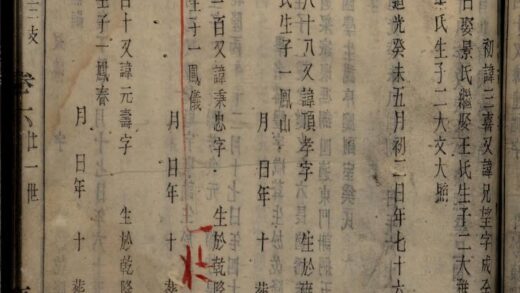 初諱三喜又諱見望字成至
日娶景氏繼娶王氏生子二大
氏生子二大文大
光癸未五月初二日年七十六
八十八又諱頂孝字 生於雍
氏生子一鳳山
月 日年 十 葬
二百又諱秉忠字 生於乾隆
氏生子一鳳儀
月 日年 十 葬
十又諱元壽字 生於乾隆
生子一鳳春
月 日年 十 葬
三支 卷六 廿一世